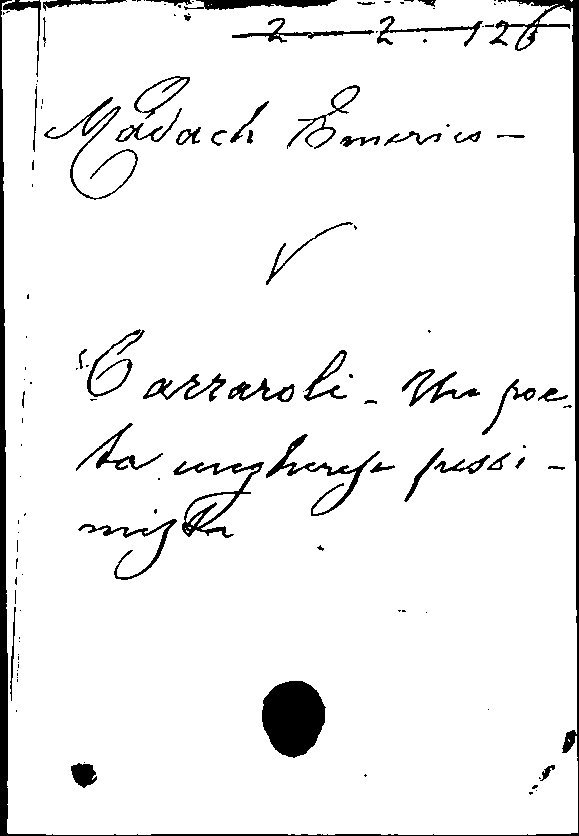 2. 2. 126
Màdach Emerico -
V
Carraroli - Un poe-
ta ungherese pessi-
mista